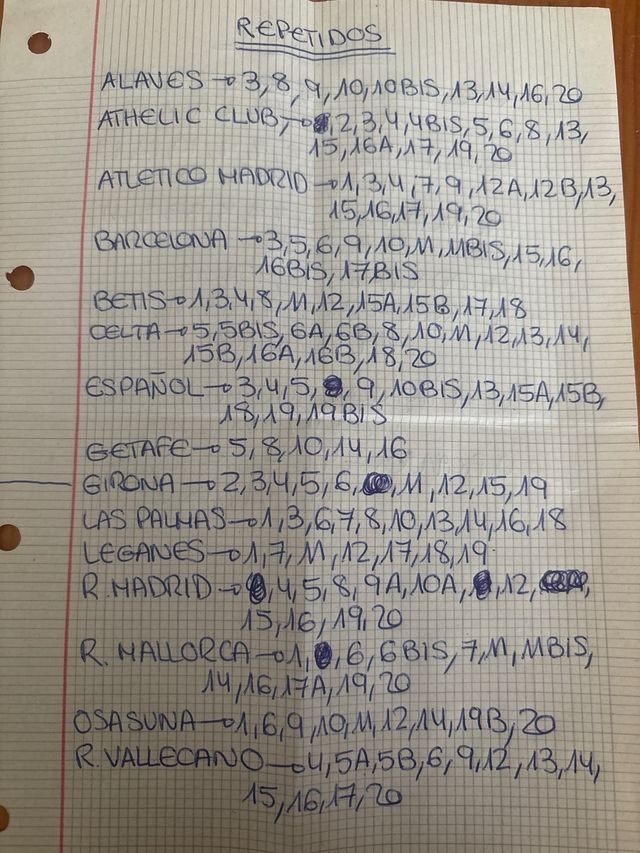 REPETIDOS
ALAVES→3,8,9,10,10BIS,13,14,16,20
ATHELIC CLUB,→,2,3,4,4BIS,5,6,8,13,
15,16A,17,19,20
ATLETICO MADRID→1,3,4,7,9,12A,12B,13,
15,16,17,19,20
BARCELONA→3,5,6,9,10,11,11BIS,15,16,
16BIS,17BIS
BETIS→1,3,4,8,11,12,15A,15B,17,18
CELTA→5,5BIS,6A,6B,8,10,11,12,13,14,
15B,16A,16B,18,20
ESPAÑOL→3,4,5,,9,10BIS,13,15A,15B,
18,19,19BIS
GETAFE→5,8,10,14,16
GIRONA→2,3,4,5,6,,11,12,15,19
LAS PALMAS→1,3,6,7,8,10,13,14,16,18
LEGANES→1,7,11,12,17,18,19
R.MADRID→,4,5,8,9A,10A,,12,,
15,16,19,20
R.MALLORCA→1,,6,6BIS,7,11,11BIS,
14,16,17A,19,20
OSASUNA→1,6,9,10,11,12,14,19B,20
R.VALLECANO→4,5A,5B,6,9,12,13,14,
15,16,17,20